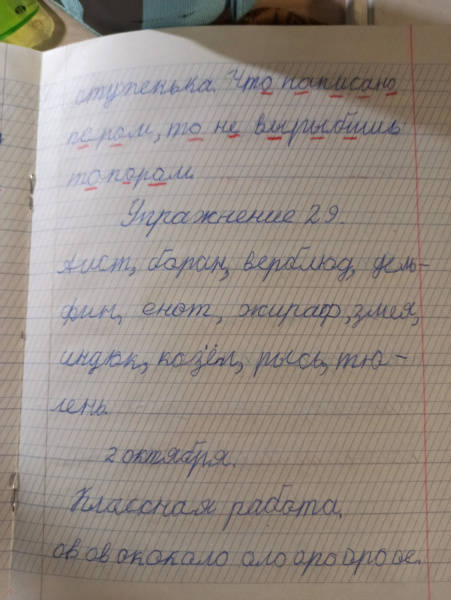 ступенька. Что написано
пером, то не вырубишь
топором.
Упражнение 29.
Аист, баран, верблюд, дель-
фин, енот, жираф, змея,
индюк, козёл, рысь, тю-
лень.
2 октября.
Классная работа.
ов ов ок ок ало оло оро оро ое.